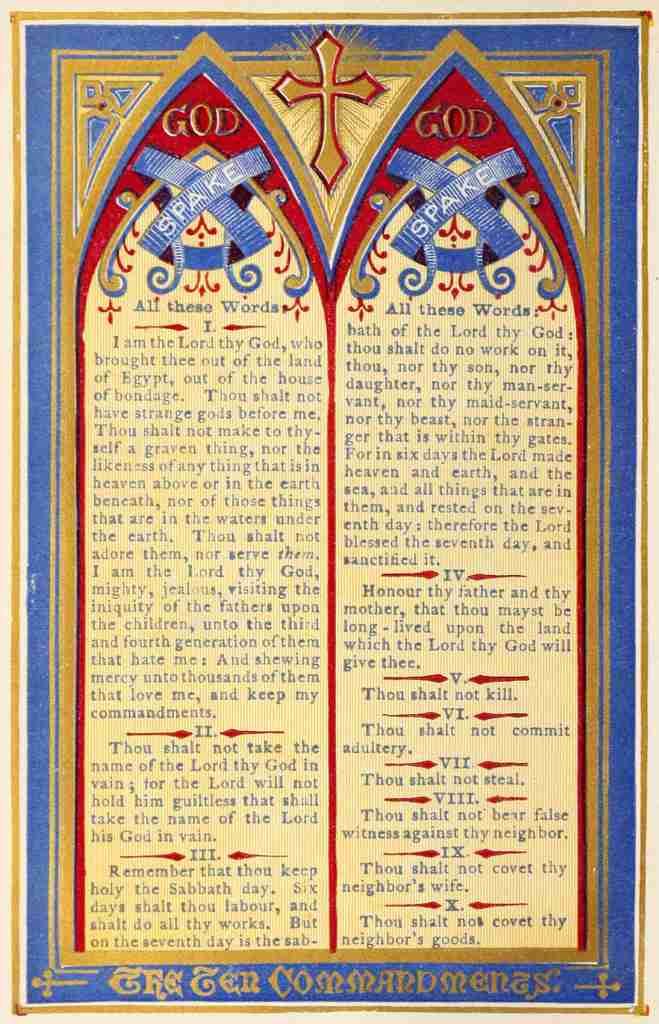 GOD
SPAKE
All these Words:
I.
I am the Lord thy God, who
brought thee out of the land
of Egypt, out of the house
of bondage. Thou shalt not
have strange gods before me.
Thou shalt not make to thy-
self a graven thing, nor the
likeness of any thing that is in
heaven above or in the earth
beneath, nor of those things
that are in the waters under
the earth. Thou shalt not
adore them, nor serve them.
I am the Lord thy God,
mighty, jealous, visiting the
iniquity of the fathers upon
the children, unto the third
and fourth generation of them
that hate me: And shewing
mercy unto thousands of them
that love me, and keep my
commandments.
II.
Thou shalt not take the
name of the Lord thy God in
vain; for the Lord will not
hold him guiltless that shall
take the name of the Lord
his God in vain.
III.
Remember that thou keep
holy the Sabbath day. Six
days shalt thou labour, and
shalt do all thy works. But
on the seventh day is the sab-
GOD
SPAKE
All these Words:
bath of the Lord thy God:
thou shalt do no work on it,
thou, nor thy son, nor thy
daughter, nor thy man-ser-
vant, nor thy maid-servant,
nor thy beast, nor the stran-
ger that is within thy gates.
For in six days the Lord made
heaven and earth, and the
sea, and all things that are in
them, and rested on the sev-
enth day: therefore the Lord
blessed the seventh day, and
sanctified it.
IV.
Honour thy father and thy
mother, that thou mayst be
long-lived upon the land
which the Lord thy God will
give thee.
V.
Thou shalt not kill.
VI.
Thou shalt not commit
adultery.
VII.
Thou shalt not steal.
VIII.
Thou shalt not bear false
witness against thy neighbor.
IX.
Thou shalt not covet thy
neighbor's wife.
X.
Thou shalt not covet thy
neighbor's goods.
The Ten Commandments.